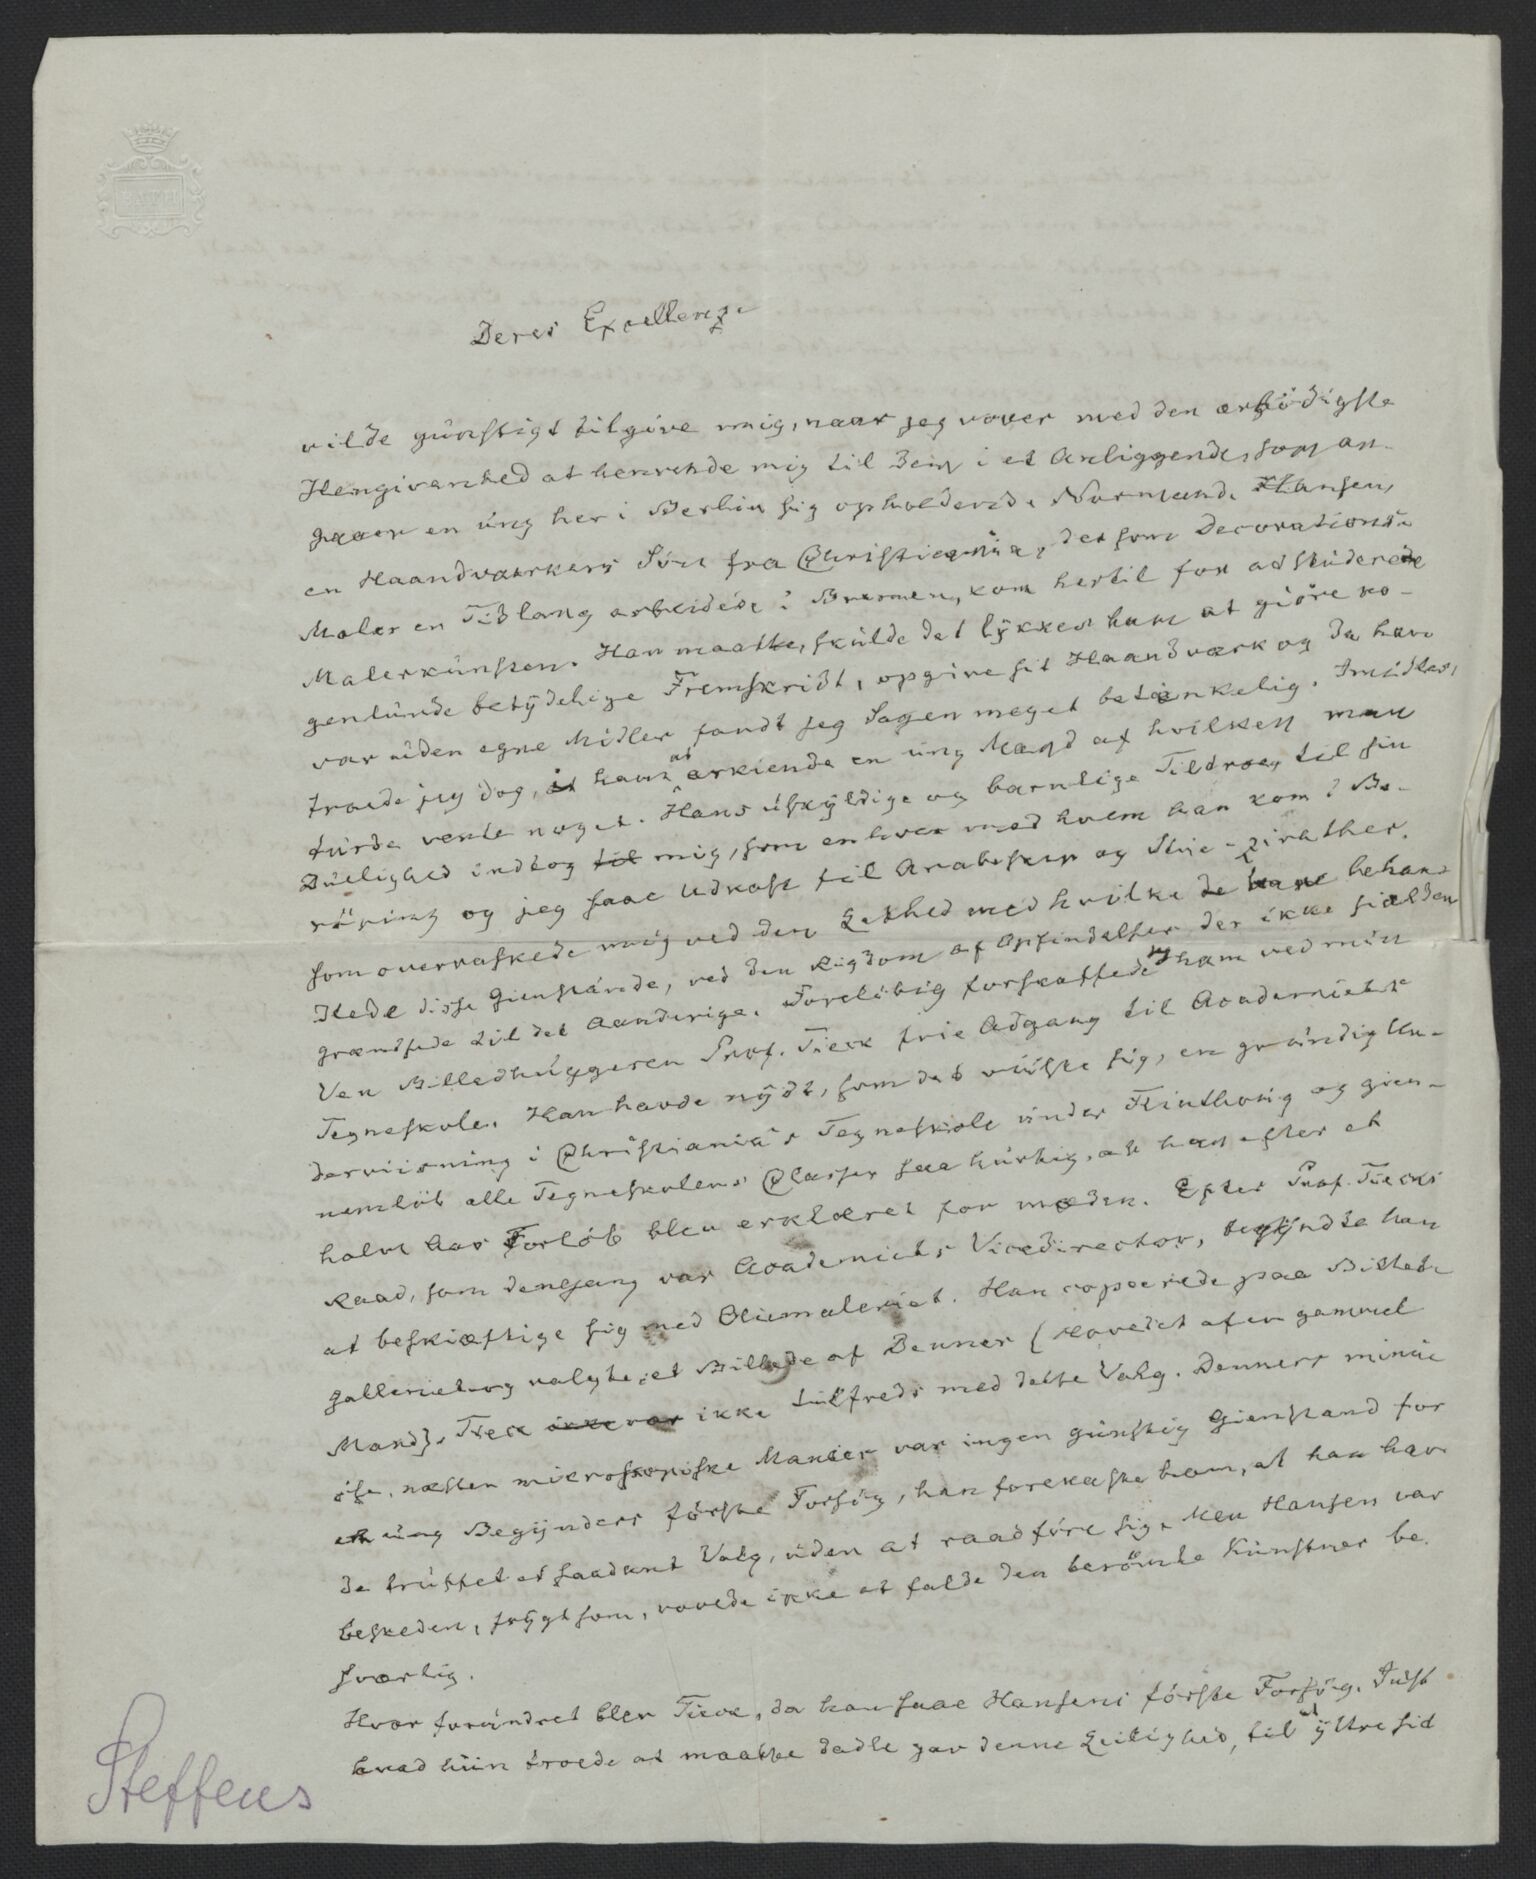 BATH
Deres Excellenze
vilde günstigt tilgive mig, naar jeg vover med den ærbödigste
Hengivenhed at henvende mig til Dem i et Anliggende, som an-
gaaer en üng her i Berlin sig opholdende Normand. Hansen,
en Haandværkers Sön fra Christiania, der som Decorations-
Maler en Tidlang arbeidede i Bremen, kom hertil for at stüdere
Malerkünsten. Han maatte, skülde det lykkes ham at giöre no-
genlünde betydelige Fremskridt, opgive sit Haandværk og da han
var üden egne Midler fandt jeg Sagen meget betænkelig. Imidlertid
troede jeg dog, i ham at erkiende en üng Mand af hvilken man
türde vente noget. Hans üskyldige og barnlige Tildroe til sin
Düelighed indtog mig, som enhver med hvem han kom i Be-
röring og jeg saae Udkast til Arabesker og Stüe-zirather,
som overraskede mig ved den Lethed med hvilke de behand-
lede disse Gienstande, ved den Rigdom af Opfindelser der ikke sielden
grændsede til det Aanderige. Forelöbig forskaffede jeg ham ved min
Ven Billedhüggeren Prof. Tieck frie Adgang til Academiets
Tegneskole. Han havde nydt, som det viiste sig, en gründig Un-
derviisning i Christiania's Tegneskole ünder Flinthoug og gien-
nemlöb alle Tegneskolens Classer saa hürtig, at han efter et
halvt Aars Forlöb blev erklæret for moden. Efter Prof. Tiecks
Raad, som dengang var Academiets Vicedirector, begyndte han
at beskiæftige sig med Oliemaleriet. Han copierede paa Billed-
galleriet og valgte et Billede af Denner (Hovedet af en gammel
Mand). Tieck ikke var ikke tilfreds med dette Valg. Denners minüi
öse, næsten microskopiske Maneer var ingen günstig Gienstand for
en üng Begynders förste Forsög, han forekastede ham, at han hav-
de trüffet et saadant Valg, üden at raadföre sig. Men Hansen var
beskeden, frygtsom, vovede ikke at falde den berömte Künstner be-
sværlig.
Hvor foründret blev Tieck, da han saae Hansens förste Forsög. Just
hvad hün troede at maatte dadle gav denne Leilighed, til at yttre sit
Steffens